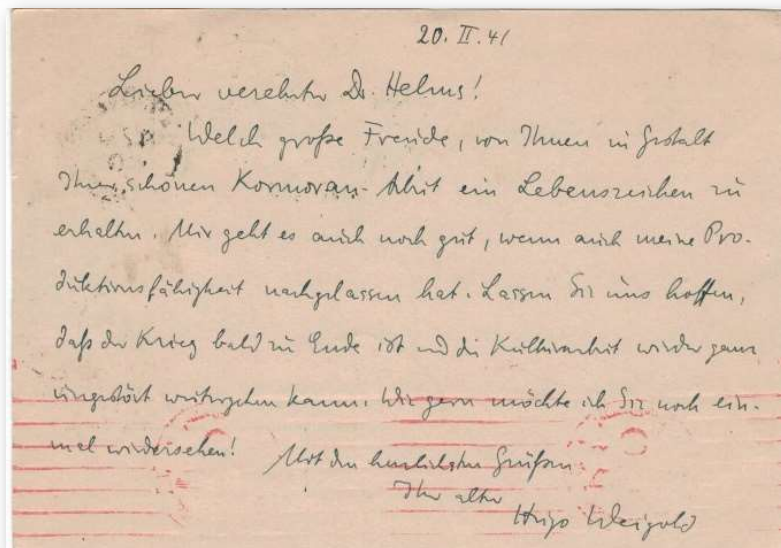 20. II. 41
Lieber verehrter Dr. Helms!
Welch große Freude, von Ihnen in Gestalt
Ihrer schönen Kormoran-Arbeit ein Lebenszeichen zu
erhalten. Mir geht es auch noch gut, wenn auch meine Pro-
duktionsfähigkeit nachgelassen hat. Lassen Sie uns hoffen,
daß der Krieg bald zu Ende ist und die Kulturarbeit wieder ganz
ungestört weitergehen kann. Wie gern möchte ich Sie noch ein-
mal wiedersehen!
Mit den herzlichsten Grüßen
Ihr alter
Hugo Weigold